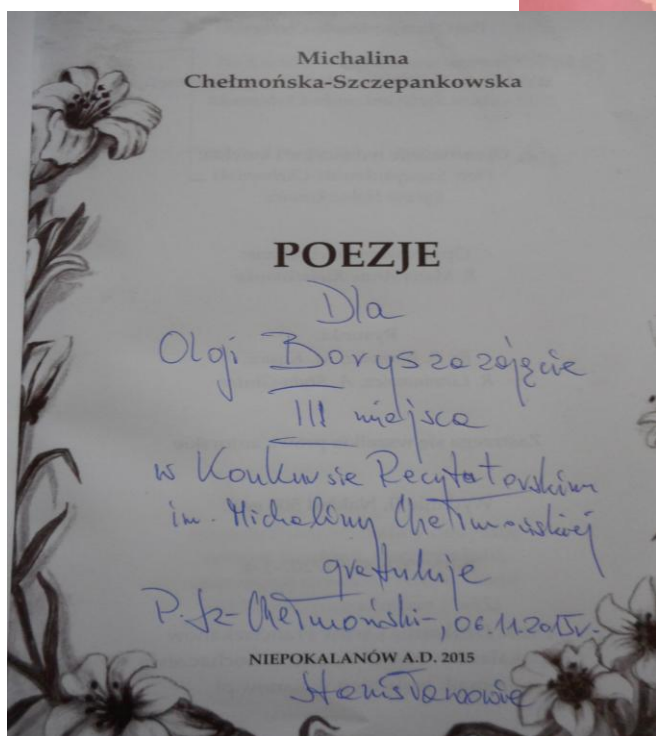 Michalina
Chełmońska-Szczepankowska
POEZJE
Dla
Olgi Borys za zajęcie
III miejsca
w Konkursie Recytatorskim
im. Michaliny Chełmońskiej
gratuluje
P. Sz-Chełmoński-, 06.11.2015r.
NIEPOKALANÓW A.D. 2015